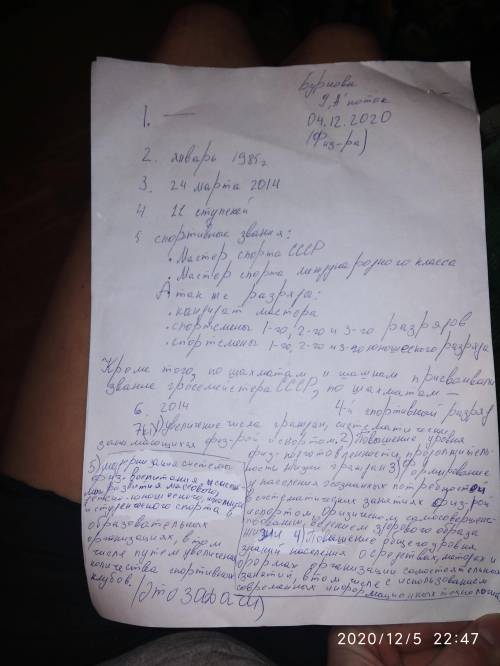 Бурнова
9 "А" поток
04.12.2020
(Физ-ра)
1. —
2. январь 1985г
3. 24 марта 2014
4 11 ступеней
5 спортивные звания:
• Мастер спорта СССР
• Мастер спорта международного класса
А так же разряда:
• кандидат мастера
• спортсмены 1-го, 2-го и 3-го разрядов
• спортсмены 1-го, 2-го и 3-го юношеского разряда
Кроме того, по шахматам и шашкам присваивали
звание гросмейстера СССР, по шахматам —
4-й спортивный разряд
6. 2014
1) Увеличение числа граждан, систематически
занимающихся физ-рой и спортом. 2) Повышение уровня
физ. подготовленности, продолжитель-
ности жизни граждан 3) Формирование
у населения осознанных потребностей
в систематических занятиях физ-рой
и спортом, физическом самосовершенс-
твовании, ведением здорового образа
жизни 4) Повышение общего уровня
знаний населения о средствах, методах и
формах организации самостоятельных
занятий, в том числе с использованием
современных информационных технологий
5) модернизация системы
физ. воспитания и систе-
мы развития массового,
детско-юношеского, школьного
и студенческого спорта в
образовательных
организациях, в том
числе путем увеличения
количества спортивных
клубов.
(Это задачи)
2020/12/5 22:47